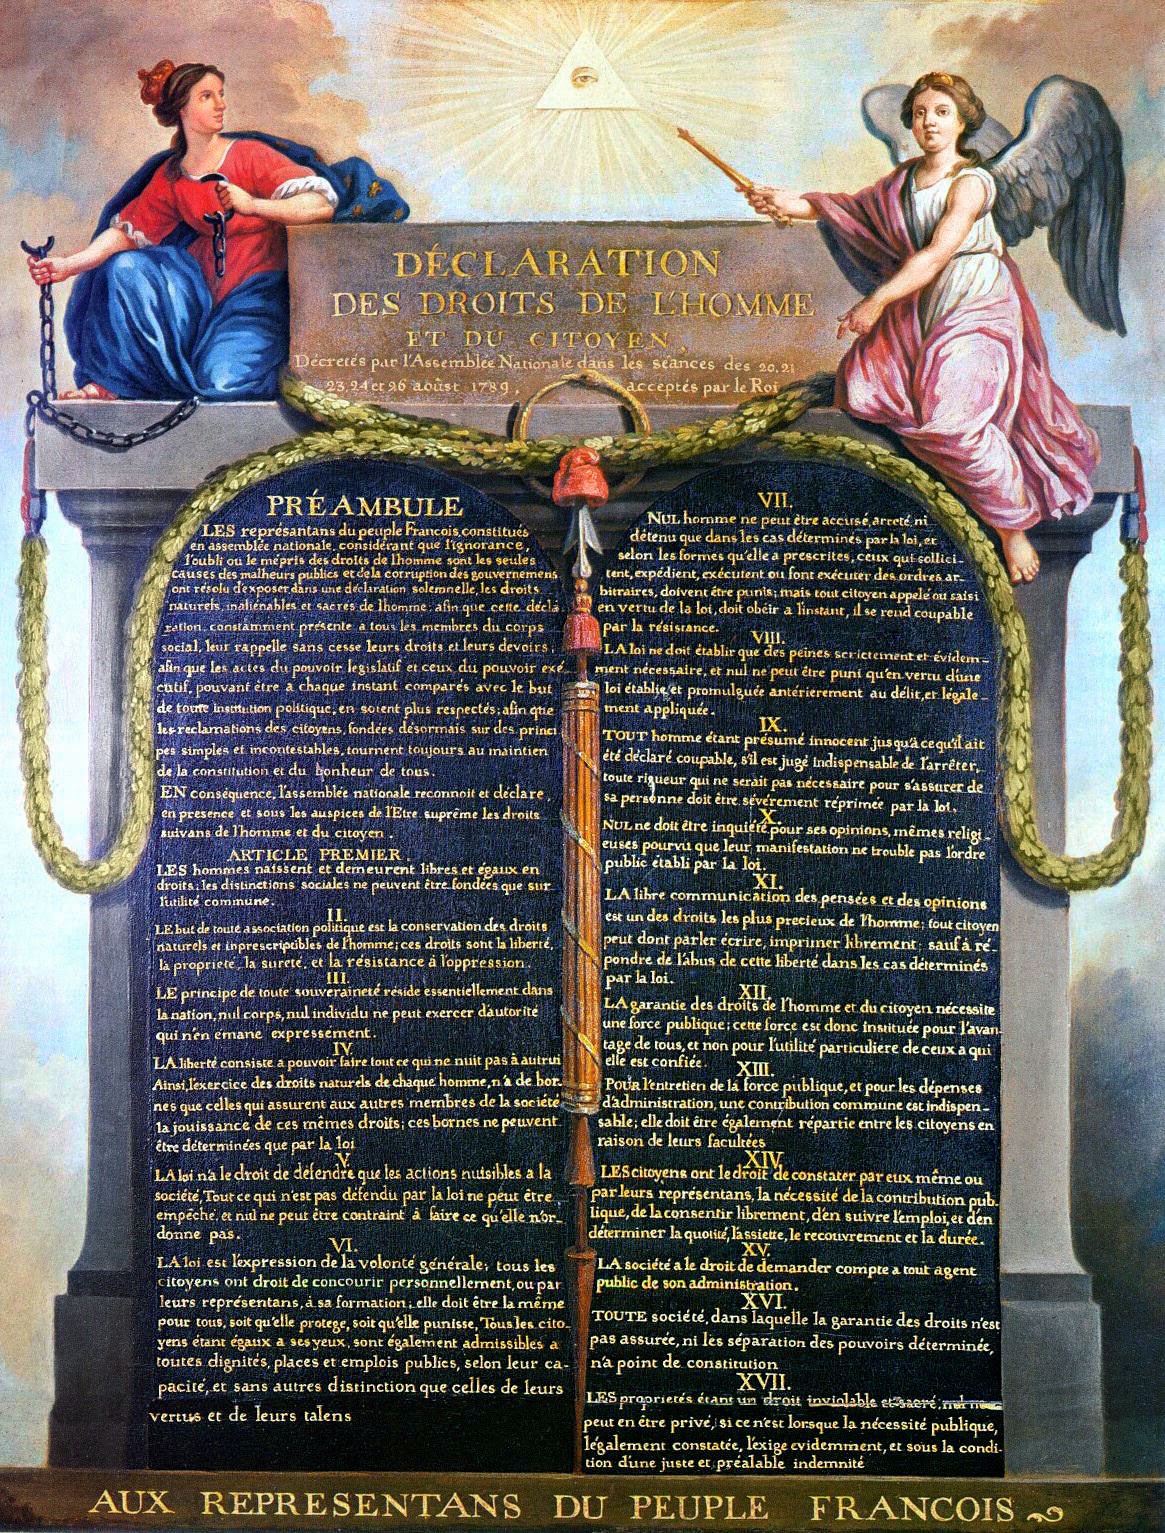 DÉCLARATION
DES DROITS DE L'HOMME
ET DU CITOYEN,
Décretés par l'Assemblée Nationale dans les séances des 20, 21
23, 24 et 26 aoûst 1789, acceptés par le Roi
PRÉAMBULE
LES représantans du peuple François, constitués
en assemblée nationale, considérant que l'ignorance,
l'oubli ou le mépris des droits de l'homme sont les seules
causes des malheurs publics et de la corruption des gouvernemens
ont résolu d'exposer dans une déclaration solemnelle, les droits
naturels, inaliénables et sacrés de l'homme; afin que cette décla
ration, constamment présente a tous les membres du corps
social, leur rappelle sans cesse leurs droits et leurs devoirs;
afin que les actes du pouvoir législatif et ceux du pouvoir exé
cutif, pouvant être a chaque instant comparés avec le but
de toute institution politique, en soient plus respectés; afin que
les reclamations des citoyens, fondées désormais sur des princi
pes simples et incontestables, tournent toujours au maintien
de la constitution et du bonheur de tous.
EN conséquence, l'assemblée nationale reconnoit et déclare,
en presence et sous les auspices de l'Etre suprême les droits
suivans de l'homme et du citoyen.
ARTICLE PREMIER.
LES hommes naissent et demeurent libres et égaux en
droits; les distinctions sociales ne peuvent être fondées que sur
l'utilité commune.
II.
LE but de toute association politique est la conservation des droits
naturels et inprescriptibles de l'homme; ces droits sont la liberté,
la propriete, la sureté, et la résistance à l'oppression.
III.
LE principe de toute souveraineté reside essentiellement dans
la nation, nul corps, nul individu ne peut exercer d'autorité
qui n'en emane expressément.
IV.
LA liberté consiste a pouvoir faire tout ce qui ne nuit pas à autrui
Ainsi, l'exercice des droits naturels de chaque homme, n'a de bor-
nes que celles qui assurent aux autres membres de la société
la jouissance de ces mêmes droits; ces bornes ne peuvent
être déterminées que par la loi
V.
LA loi n'a le droit de défendre que les actions nuisibles a la
société, Tout ce qui n'est pas défendu par la loi ne peut être
empêché, et nul ne peut être contraint à faire ce qu'elle n'or-
donne pas.
VI.
LA loi est l'expression de la volonté générale; tous les
citoyens ont droit de concourir personnellement, ou par
leurs représentans, à sa formation; elle doit être la même
pour tous, soit qu'elle protege, soit qu'elle punisse, Tous les cito-
yens étant égaux a ses yeux, sont également admissibles a
toutes dignités, places et emplois publics, selon leur ca-
pacité, et sans autres distinction que celles de leurs
vertus et de leurs talens
VII.
NUL homme ne peut être accusé, arreté, ni
détenu que dans les cas déterminés par la loi, et
selon les formes qu'elle a prescrites, ceux qui sollici-
tent, expédient, exécutent ou font exécuter des ordres ar-
bitraires, doivent être punis; mais tout citoyen appelé ou saisi
en vertu de la loi, doit obéir a l'instant, il se rend coupable
par la résistance.
VIII.
LA loi ne doit établir que des peines strictement et évidem-
ment nécessaire, et nul ne peut être puni qu'en vertu d'une
loi établie, et promulguée antérierement au délit, et légale-
ment appliquée.
IX.
TOUT homme étant présumé innocent jusqu'a ce qu'il ait
été déclaré coupable, s'il est jugé indispensable de l'arrêter,
toute rigueur qui ne serait pas nécessaire pour s'assurer de
sa personne doit être sévèrement réprimée par la loi.
X.
NUL ne doit être inquiété pour ses opinions, mêmes religi-
euses pourvu que leur manifestation ne trouble pas l'ordre
public établi par la loi.
XI.
LA libre communication des pensées et des opinions
est un des droits les plus precieux de l'homme; tout citoyen
peut dont parler écrire, imprimer librement; sauf à ré-
pondre de l'abus de cette liberté dans les cas déterminés
par la loi.
XII.
LA garantie des droits de l'homme et du citoyen nécessite
une force publique; cette force est donc instituée pour l'avan-
tage de tous, et non pour l'utilité particuliere de ceux a qui
elle est confiée.
XIII.
POUR l'entretien de la force publique, et pour les dépenses
d'administration, une contribution commune est indispen-
sable; elle doit être également répartie entre les citoyens en
raison de leurs facultées
XIV.
LES citoyens ont le droit de constater par eux même ou
par leurs représentans, la nécessité de la contribution pub-
lique, de la consentir librement, d'en suivre l'emploi, et d'en
déterminer la quotité, l'assiette, le recouvrement et la durée.
XV.
LA société a le droit de demander compte a tout agent
public de son administration.
XVI.
TOUTE société, dans laquelle la garantie des droits n'est
pas assurée, ni les séparation des pouvoirs déterminée,
n'a point de constitution
XVII.
LES proprietés étant un droit inviolable et sacré, nul ne
peut en être privé, si ce n'est lorsque la nécessité publique,
légalement constatée, l'exige evidemment, et sous la condi-
tion d'une juste et préalable indemnité
AUX REPRESENTANS DU PEUPLE FRANCOIS